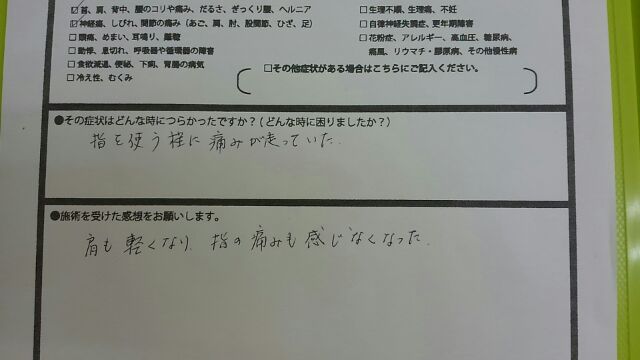 ☑首、肩、背中、腰のコリや痛み、だるさ、ぎっくり腰、ヘルニア
☑神経痛、しびれ、関節の痛み（あご、肩、肘、股関節、ひざ、足）
□頭痛、めまい、耳鳴り、難聴
□動悸、息切れ、呼吸器や循環器の障害
□食欲減退、便秘、下痢、胃腸の病気
□冷え性、むくみ
□生理不順、生理痛、不妊
□自律神経失調症、更年期障害
□花粉症、アレルギー、高血圧、糖尿病、
痛風、リウマチ・膠原病、その他慢性病
□その他症状がある場合はこちらにご記入ください。
●その症状はどんな時につらかったですか？（どんな時に困りましたか？）
指を使う様に痛みが走っていた.
●施術を受けた感想をお願いします。
肩も軽くなり、指の痛みも感じなくなった.